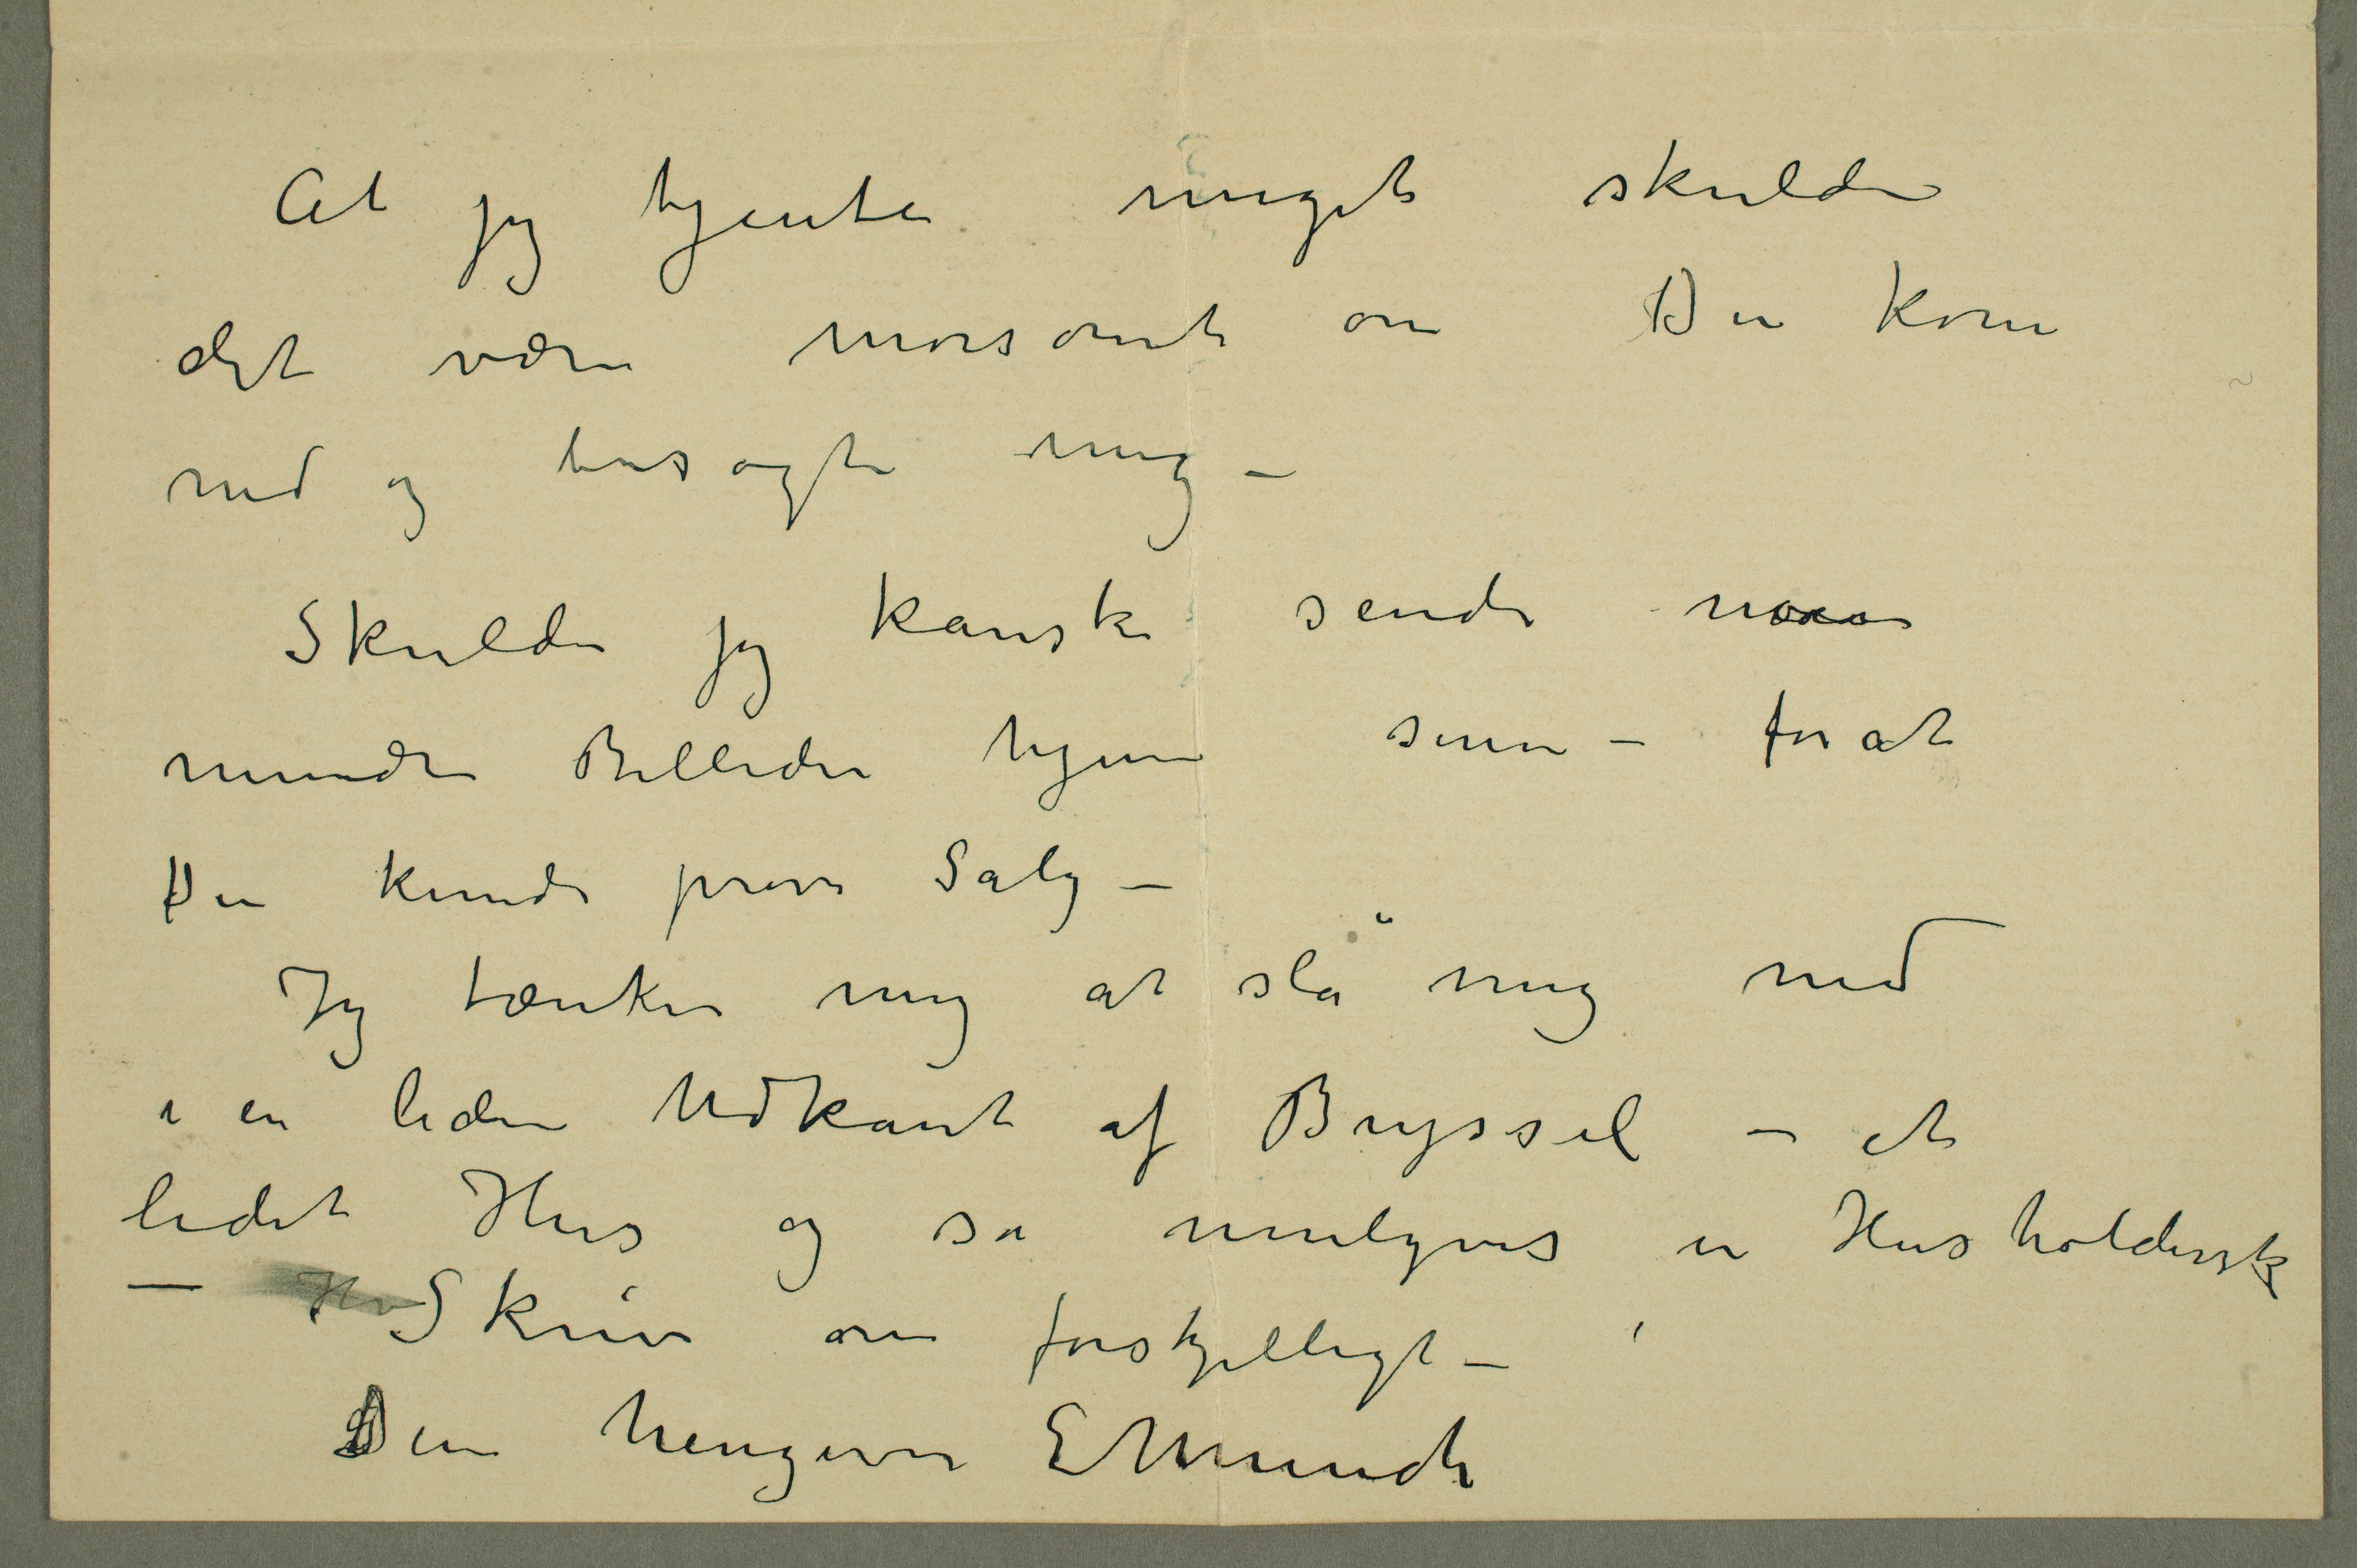 At jeg tjente meget skulde
det være morsomt om Du kom
ned og besøgte mig –
Skulde jeg kanske sende noen
mindre Billeder hjem senere – forat
Du kunde prøve Salg –
Jeg tænker mig at slå mig ned
i en liden Udkant af Bryssel – et
lidet Hus og så muligvis en Husholdersk
– Skriv om forskjelligt –
Din hengivne EMunch